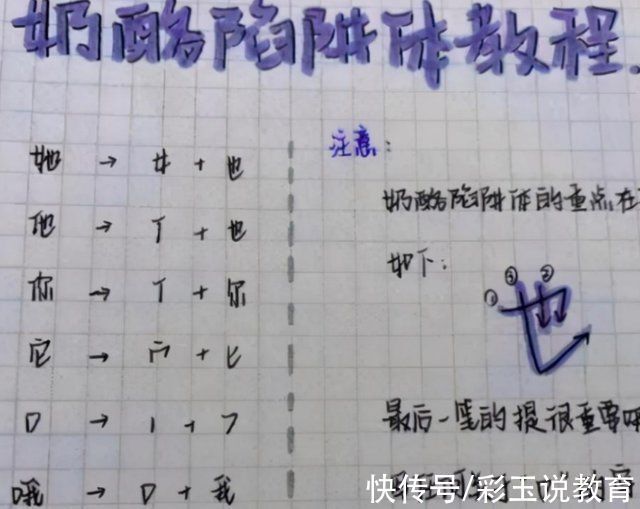 奶酪陷阱体教程
她 → 女 + 也
他 → 亻 + 也
你 → 亻 + 尔
它 → 宀 + 匕
口 → 丨 + フ
哦 → 口 + 我
注意：
奶酪陷阱体的重点在
如下：
① ③ ②
也
最后一笔的提很重要
快传号/彩玉说教育